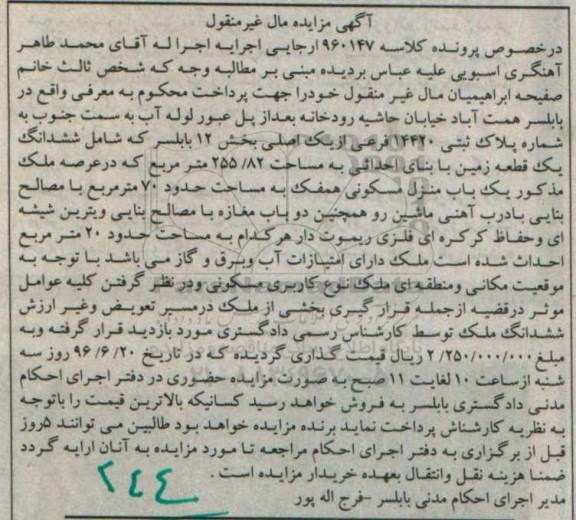 آگهی مزایده مال غیرمنقول
درخصوص پرونده کلاسه ۹۶۰۱۴۷ ارجایی اجرایه اجرا له آقای محمد طاهر
آهنگری اسبویی علیه عباس بردیده مبنی بر مطالبه وجه که شخص ثالث خانم
صفیحه ابراهیمیان مال غیر منقول خودرا جهت پرداخت محکوم به معرفی واقع در
بابلسر همت آباد خیابان حاشیه رودخانه بعداز پل عبور لوله آب به سمت جنوب به
شماره پلاک ثبتی ۱۴۴۲۰ فرعی ازیک اصلی بخش ۱۲ بابلسر که شامل ششدانگ
یک قطعه زمین با بنای احداثی به مساحت ۲۵۵/۸۲ متر مربع که درعرصه ملک
مذکور یک باب منزل مسکونی همفک به مساحت حدود ۷۰ مترمربع با مصالح
بنایی بادرب آهنی ماشین رو همچنین دو باب مغازه با مصالح بنایی ویترین شیشه
ای وحفاظ کرکره ای فلزی ریموت دار هرکدام به مساحت حدود ۲۰ متر مربع
احداث شده است ملک دارای امتیازات آب وبرق و گاز می باشد با توجه به
موقعیت مکانی ومنطقه ای ملک نوع کاربری مسکونی ودر نظر گرفتن کلیه عوامل
موثر درقضیه ازجمله قرار گیری بخشی از ملک درمسیر تعویض وغیر ارزش
ششدانگ ملک توسط کارشناس رسمی دادگستری مورد بازدید قرار گرفته وبه
مبلغ ۲/۲۵۰/۰۰۰/۰۰۰ ریال قیمت گذاری گردیده که در تاریخ ۹۶/۶/۲۰ روز سه
شنبه ازساعت ۱۰ لغایت ۱۱ صبح به صورت مزایده حضوری در دفتر اجرای احکام
مدنی دادگستری بابلسر به فروش خواهد رسید کسانیکه بالاترین قیمت را باتوجه
به نظریه کارشناس پرداخت نماید برنده مزایده خواهد بود طالبین می توانند ۵روز
قبل از برگزاری به دفتر اجرای احکام مراجعه تا مورد مزایده به آنان ارایه گردد
ضمنا هزینه نقل وانتقال بعهده خریدار مزایده است .
مدیر اجرای احکام مدنی بابلسر -فرج اله پور
۲۴۴